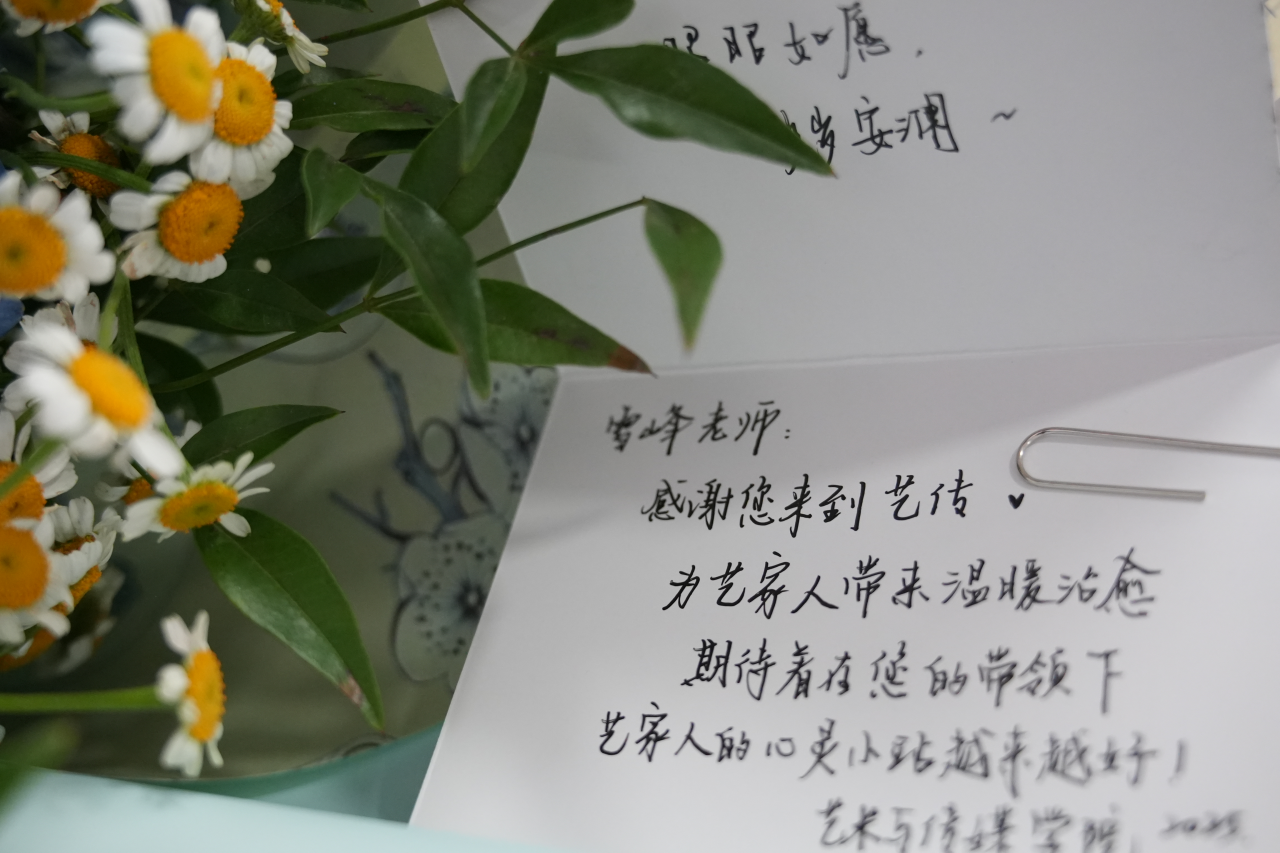 眼眼如愿.
岁安澜~
雪峰老师:
感谢您来到艺传♥
为艺家人带来温暖治愈
期待着在您的带领下
艺家人的心灵小站越来越好！
艺术与传媒学院. 2025